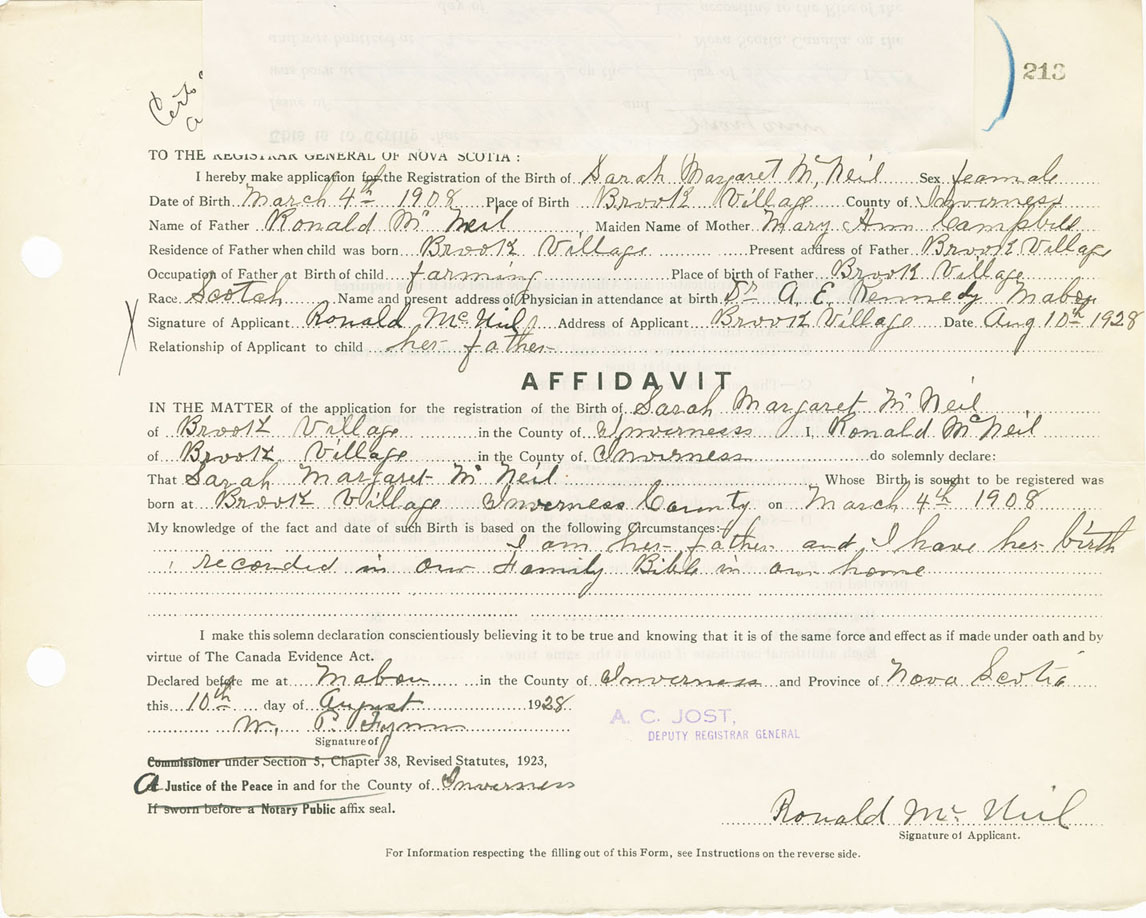 213
TO THE REGISTRAR GENERAL OF NOVA SCOTIA :
I hereby make application for the Registration of the Birth of Sarah Margaret Mc Neil Sex feamale
Date of Birth March 4th 1908 Place of Birth Brook Village County of Inverness
Name of Father Ronald Mc Neil Maiden Name of Mother Mary Ann Campbell
Residence of Father when child was born Brook Village Present address of Father Brook Village
Occupation of Father at Birth of child farming Place of birth of Father Brook Village
Race Scotch Name and present address of Physician in attendance at birth Dr A. E. Kennedy Mabou
Signature of Applicant Ronald McNeil Address of Applicant Brook Village Date Aug 10th 1928
Relationship of Applicant to child her father
AFFIDAVIT
IN THE MATTER of the application for the registration of the Birth of Sarah Margaret Mc Neil
of Brook Village in the County of Inverness I, Ronald McNeil
of Brook Village in the County of Inverness do solemnly declare:
That Sarah Margaret Mc Neil Whose Birth is sought to be registered was
born at Brook Village Inverness County on March 4th 1908
My knowledge of the fact and date of such Birth is based on the following Circumstances:
I am her father and I have her birth
reconded in our Family Bible in our home
I make this solemn declaration conscientiously believing it to be true and knowing that it is of the same force and effect as if made under oath and by
virtue of The Canada Evidence Act.
Declared before me at Mabou in the County of Inverness and Province of Nova Scotia
this 10th day of August 1928
W. P.
Signature of
Commissioner under Section 5, Chapter 38, Revised Statutes, 1923,
A Justice of the Peace in and for the County of Inverness
If sworn before a Notary Public affix seal.
A. C. JOST,
DEPUTY REGISTRAR GENERAL
Ronald Mc Neil
Signature of Applicant.
For Information respecting the filling out of this Form, see Instructions on the reverse side.